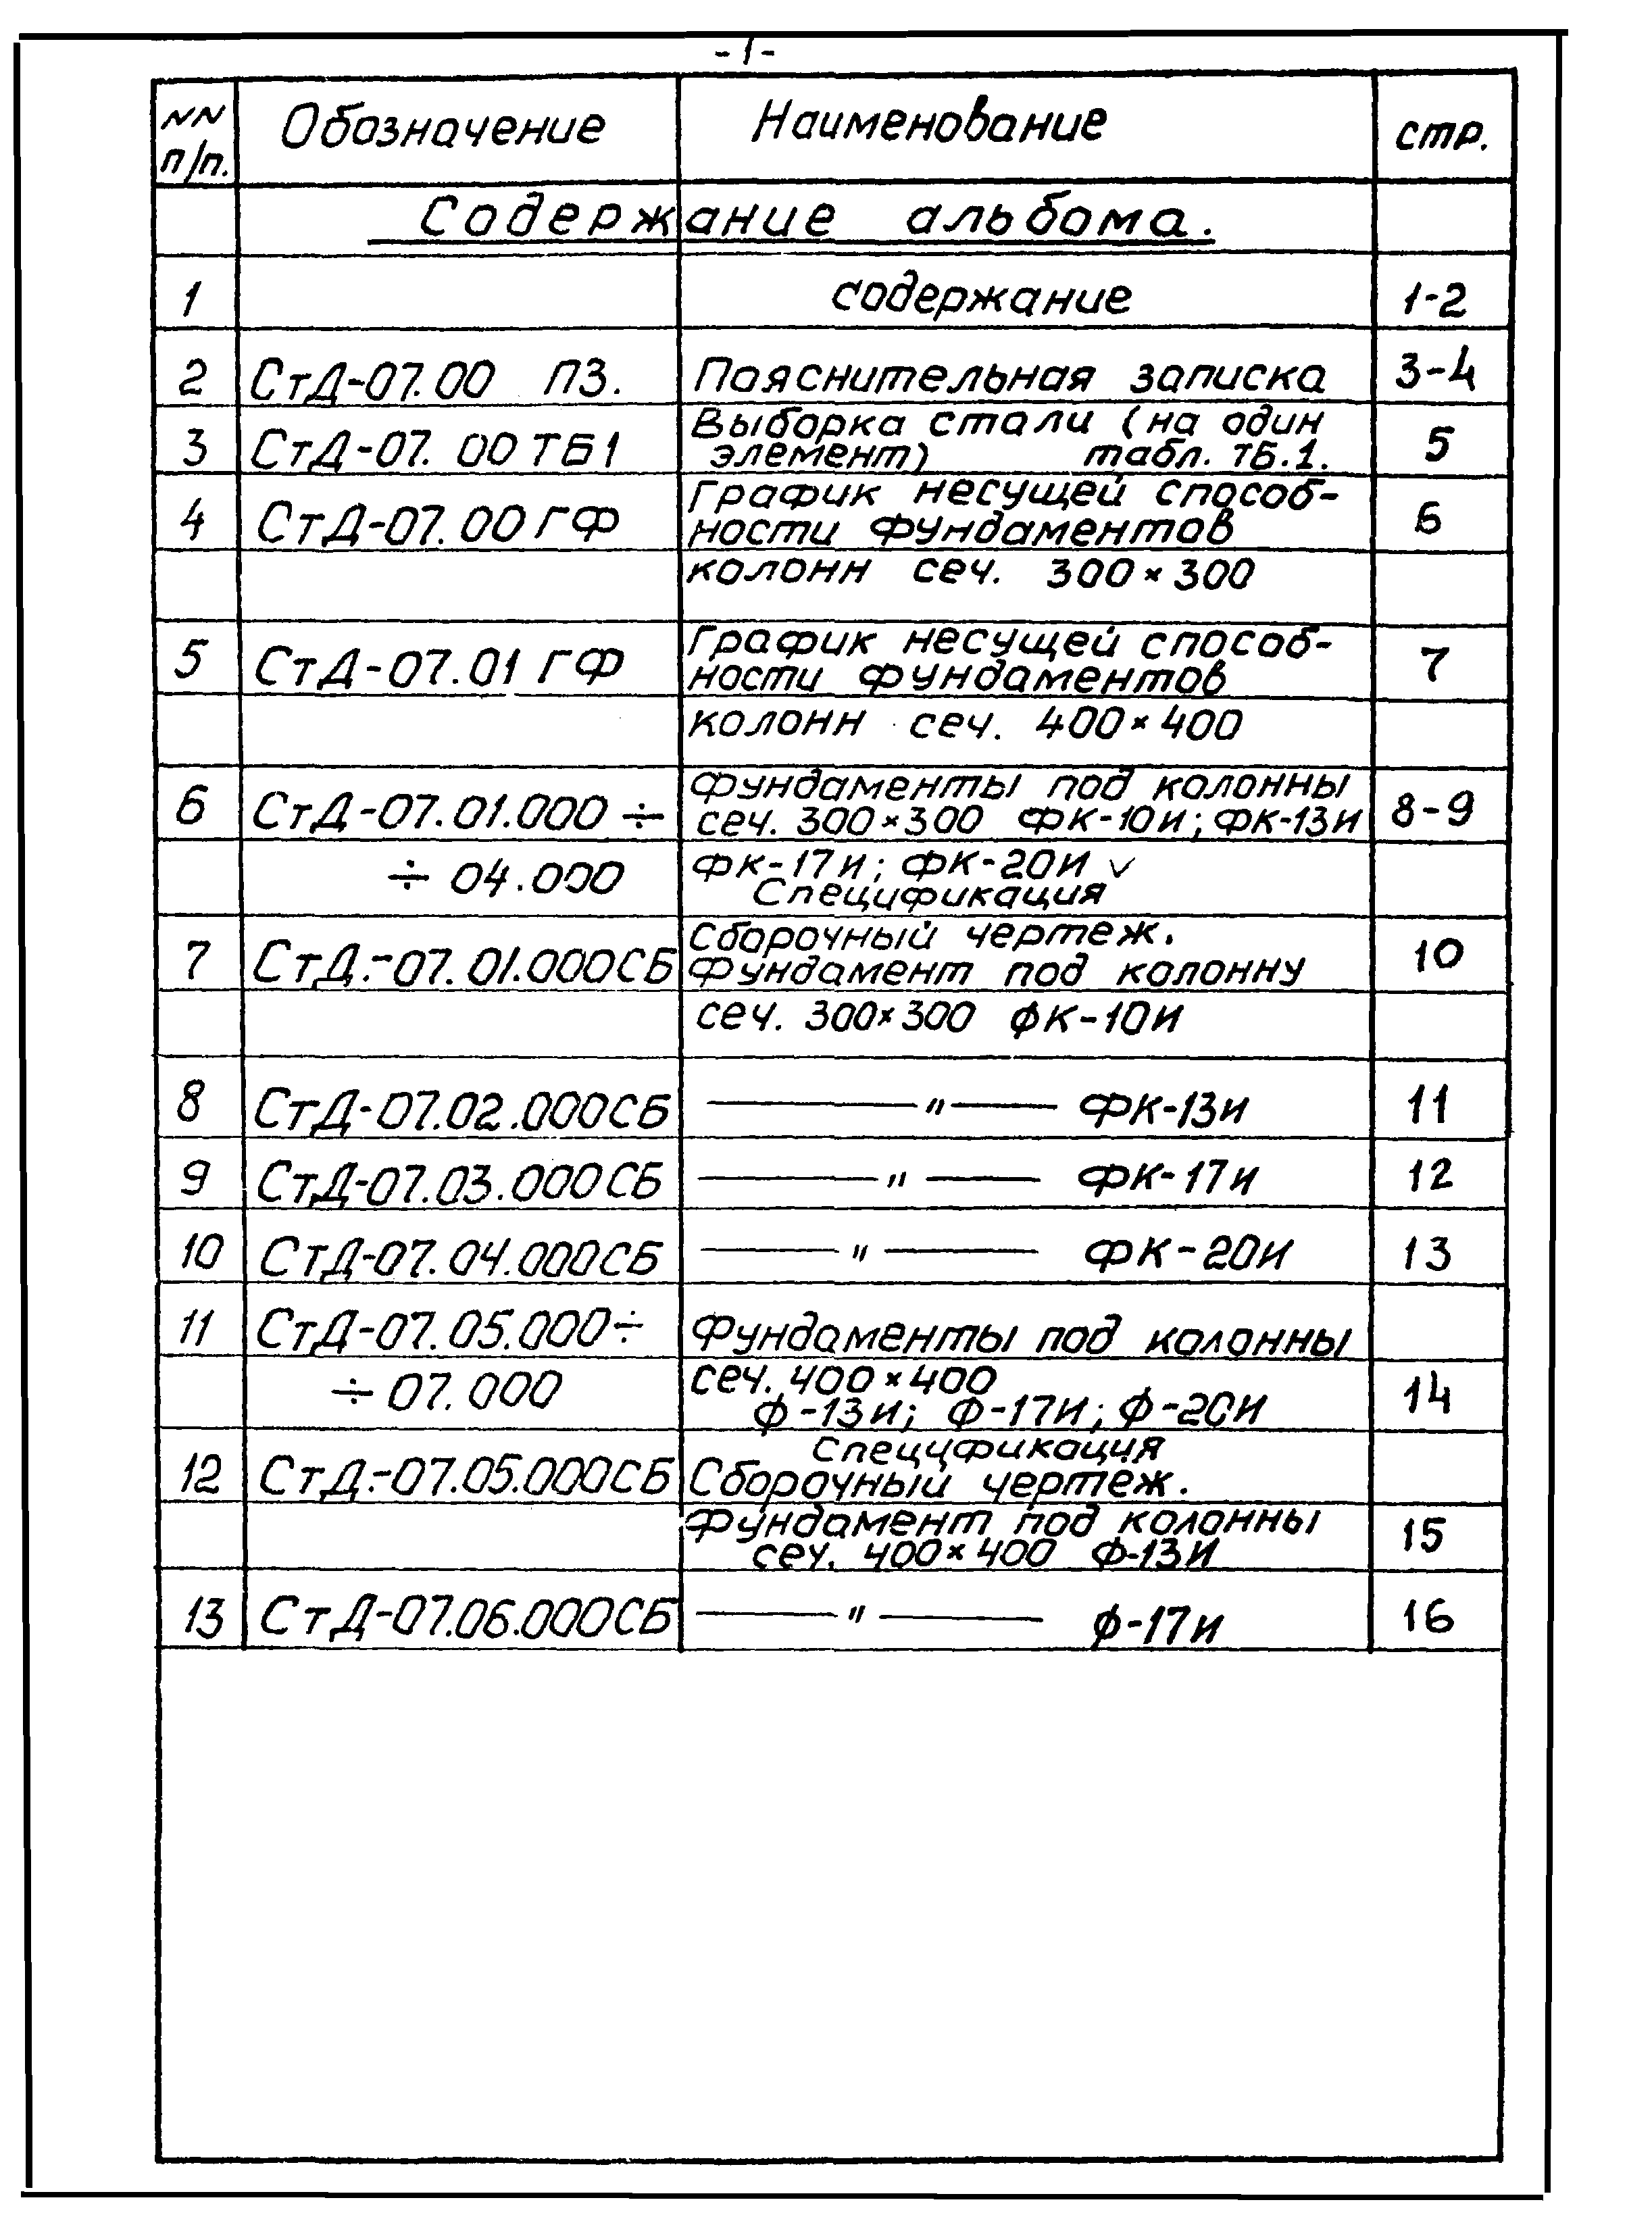 - 1 -
NN Обозначение Наименование стр.
п/п.
Содержание альбома.
1 содержание 1-2
2 СтД-07.00 ПЗ. Пояснительная записка 3-4
Выборка стали (на один
3 СтД-07.00ТБ1 элемент) табл. ТБ.1. 5
График несущей способ-
4 СтД-07.00ГФ ности фундаментов 6
колонн сеч. 300×300
График несущей способ-
5 СтД-07.01 ГФ ности фундаментов 7
колонн сеч. 400×400
Фундаменты под колонны
6 СтД-07.01.000 ÷ сеч. 300×300 ФК-10И; ФК-13И 8-9
÷ 04.000 ФК-17И; ФК-20И ✓
Спецификация
Сборочный чертеж.
7 СтД.-07.01.000СБ Фундамент под колонну 10
сеч. 300×300 ФК-10И
8 СтД-07.02.000СБ —— " —— ФК-13И 11
9 СтД-07.03.000СБ —— " —— ФК-17И 12
10 СтД-07.04.000СБ —— " —— ФК-20И 13
11 СтД-07.05.000÷ Фундаменты под колонны
÷ 07.000 сеч. 400×400 14
Ф-13И; Ф-17И; Ф-20И
Спецификация
12 СтД.-07.05.000СБ Сборочный чертеж.
Фундамент под колонны 15
сеч. 400×400 Ф-13И
13 СтД-07.06.000СБ —— " —— Ф-17И 16